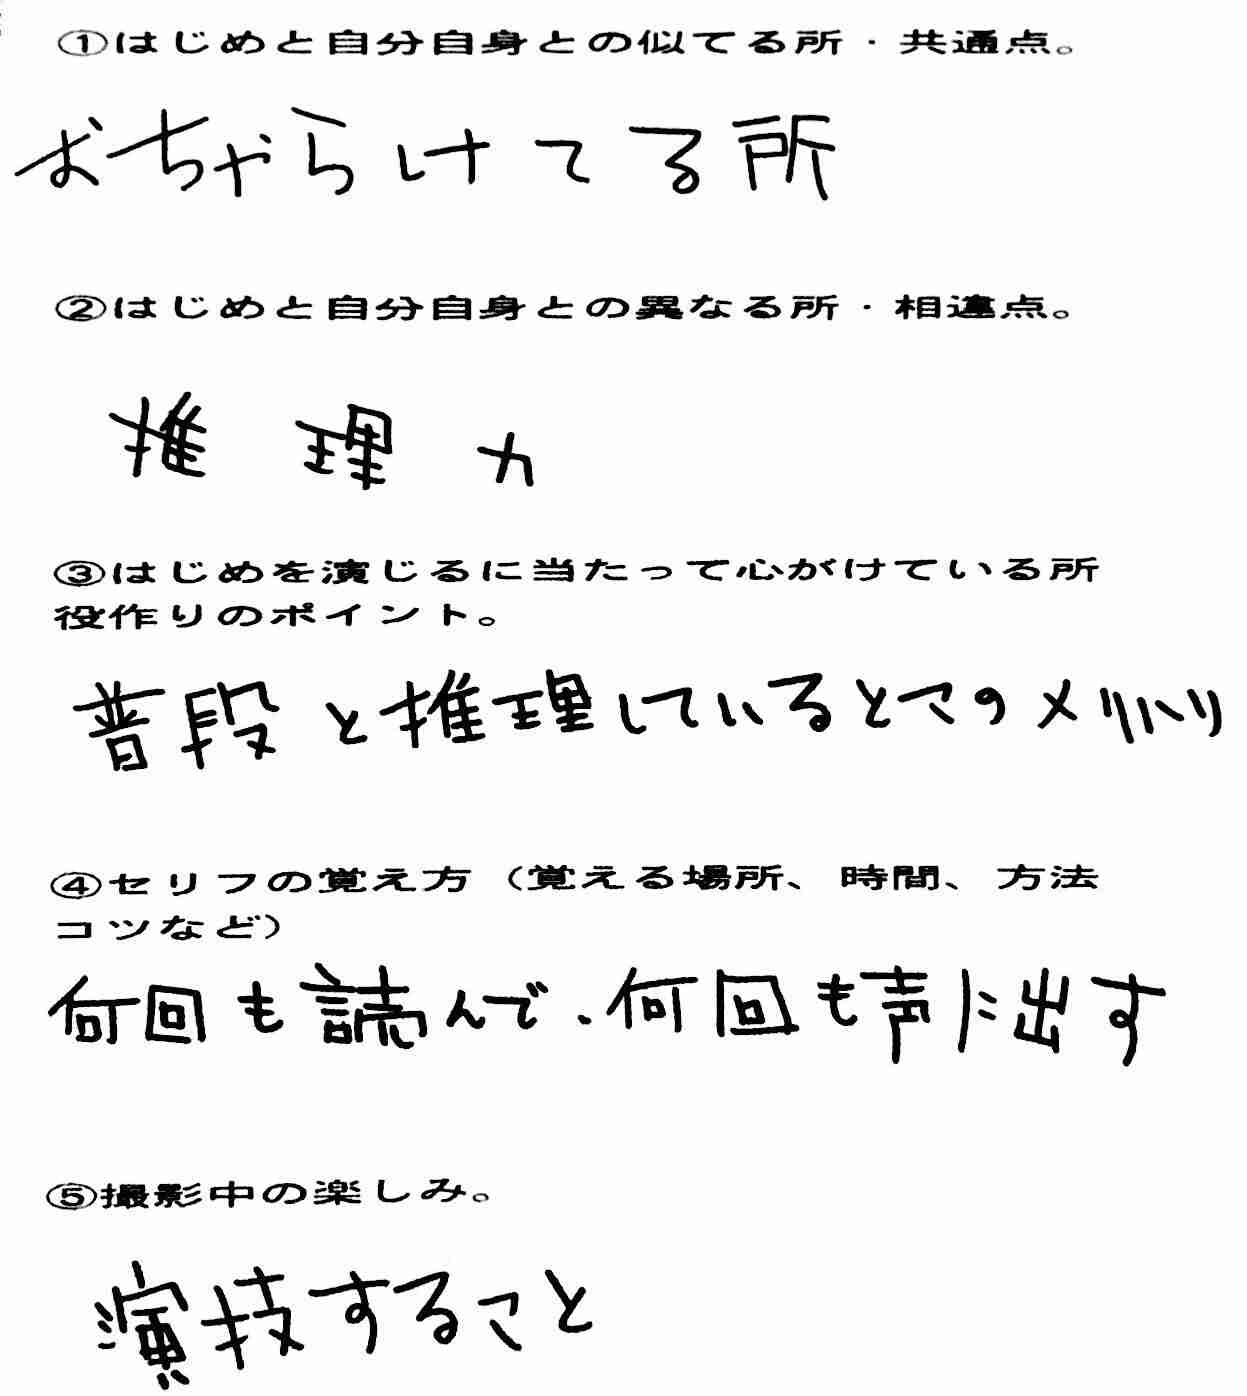 ①はじめと自分自身との似てる所・共通点。
おちゃらけてる所
②はじめと自分自身との異なる所・相違点。
推理力
③はじめを演じるに当たって心がけている所
役作りのポイント。
普段と推理しているときのメリハリ
④セリフの覚え方（覚える場所、時間、方法
コツなど）
何回も読んで、何回も声に出す
⑤撮影中の楽しみ。
演技すること